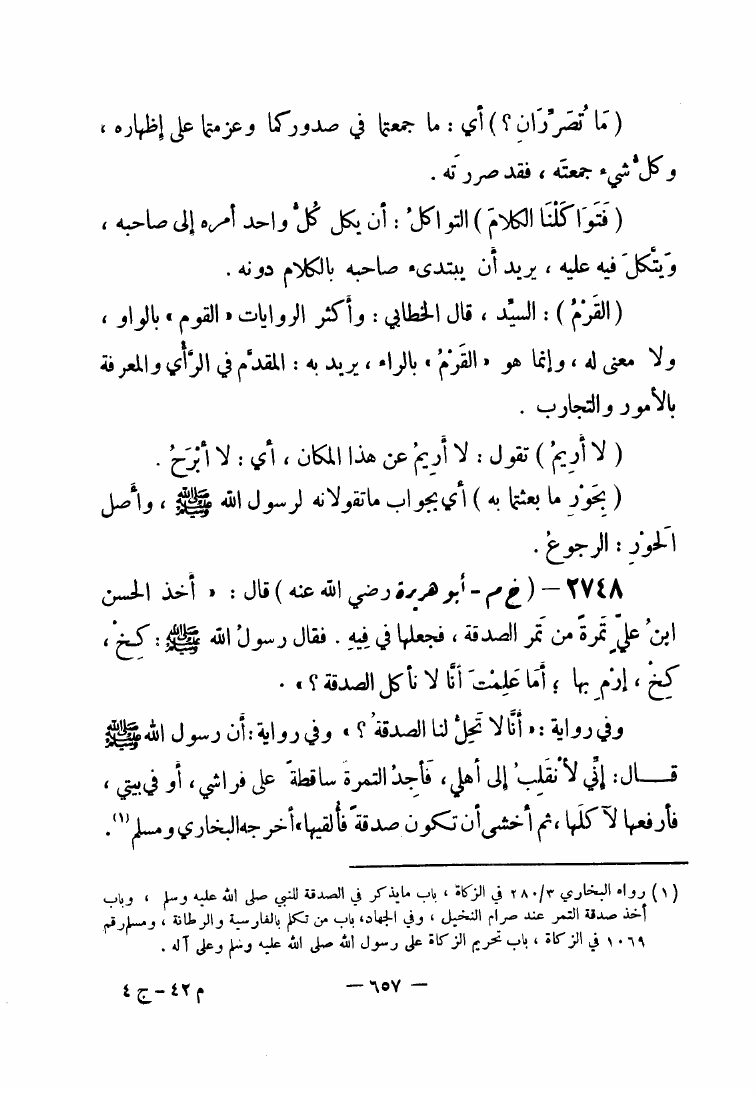 ( مَا تُصَرِّرَانِ ؟ ) أي : ما جمعتما في صدوركما وعزمتما على إظهاره ،
وكلُّ شيء جمعتَه ، فقد صررتَه .
( فَتَوَاكَلْنَا الكلامَ ) التواكلُ : أن يكل كُلُّ واحد أمره إلى صاحبه ،
وَيَتَّكلَ فيه عليه ، يريد أن يبتدىء صاحبه بالكلام دونه .
( القَرْمُ ) : السيِّد ، قال الخطابي : وأكثر الروايات « القوم » بالواو ،
ولا معنى له ، وإنما هو « القَرْمُ » بالراء ، يريد به : المقدَّم في الرَّأي والمعرفة
بالأمور والتجارب .
( لا أَرِيمُ ) تقول : لا أَرِيمُ عن هذا المكان ، أي : لا أَبْرَحُ .
( بِحَوْرِ ما بعثتما به ) أي بجواب ماتقولانه لرسول الله ﷺ ، وأصل
الَحوْرِ : الرجوعُ .
٢٧٤٨ – ( خ م – أبو هريرة رضي الله عنه ) قال : « أخذ الحسن
ابنُ عليٍّ تَمرةً من تَمر الصدقة ، فجعلها في فِيهِ . فقال رسولُ الله ﷺ : كِخْ ،
كِخْ ، إرْمِ بها ؛ أمَا عَلِمْتَ أنَّا لا نأكل الصدقة ؟ » .
وفي رواية : « أنَّا لا تَحِلُّ لنا الصدقةُ ؟ » وفي رواية : أن رسول الله ﷺ
قـــال : إنِّي لأنقَلِبُ إلى أهلي ، فَأجِدُ التمرةَ ساقطةً على فراشي ، أو في بيتي ،
فأرفعها لآكلَها ، ثم أخشى أن تكون صدقةً فأُلقيها » أخرجه البخاري ومسلم (١) .
(١) رواه البخاري ٣/ ٢٨٠ في الزكاة ، باب مايذكر في الصدقة للنبي صلى الله عليه وسلم ، وباب
أخذ صدقة التمر عند صرام النخيل ، وفي الجهاد، باب من تكلم بالفارسية والرطانة ، ومسلم رقم
١٠٦٩ في الزكاة ، باب تحريم الزكاة على رسول الله صلى الله عليه وسلم وعلى آله .
– ٦٥٧ –
م ٤٢ – ج ٤